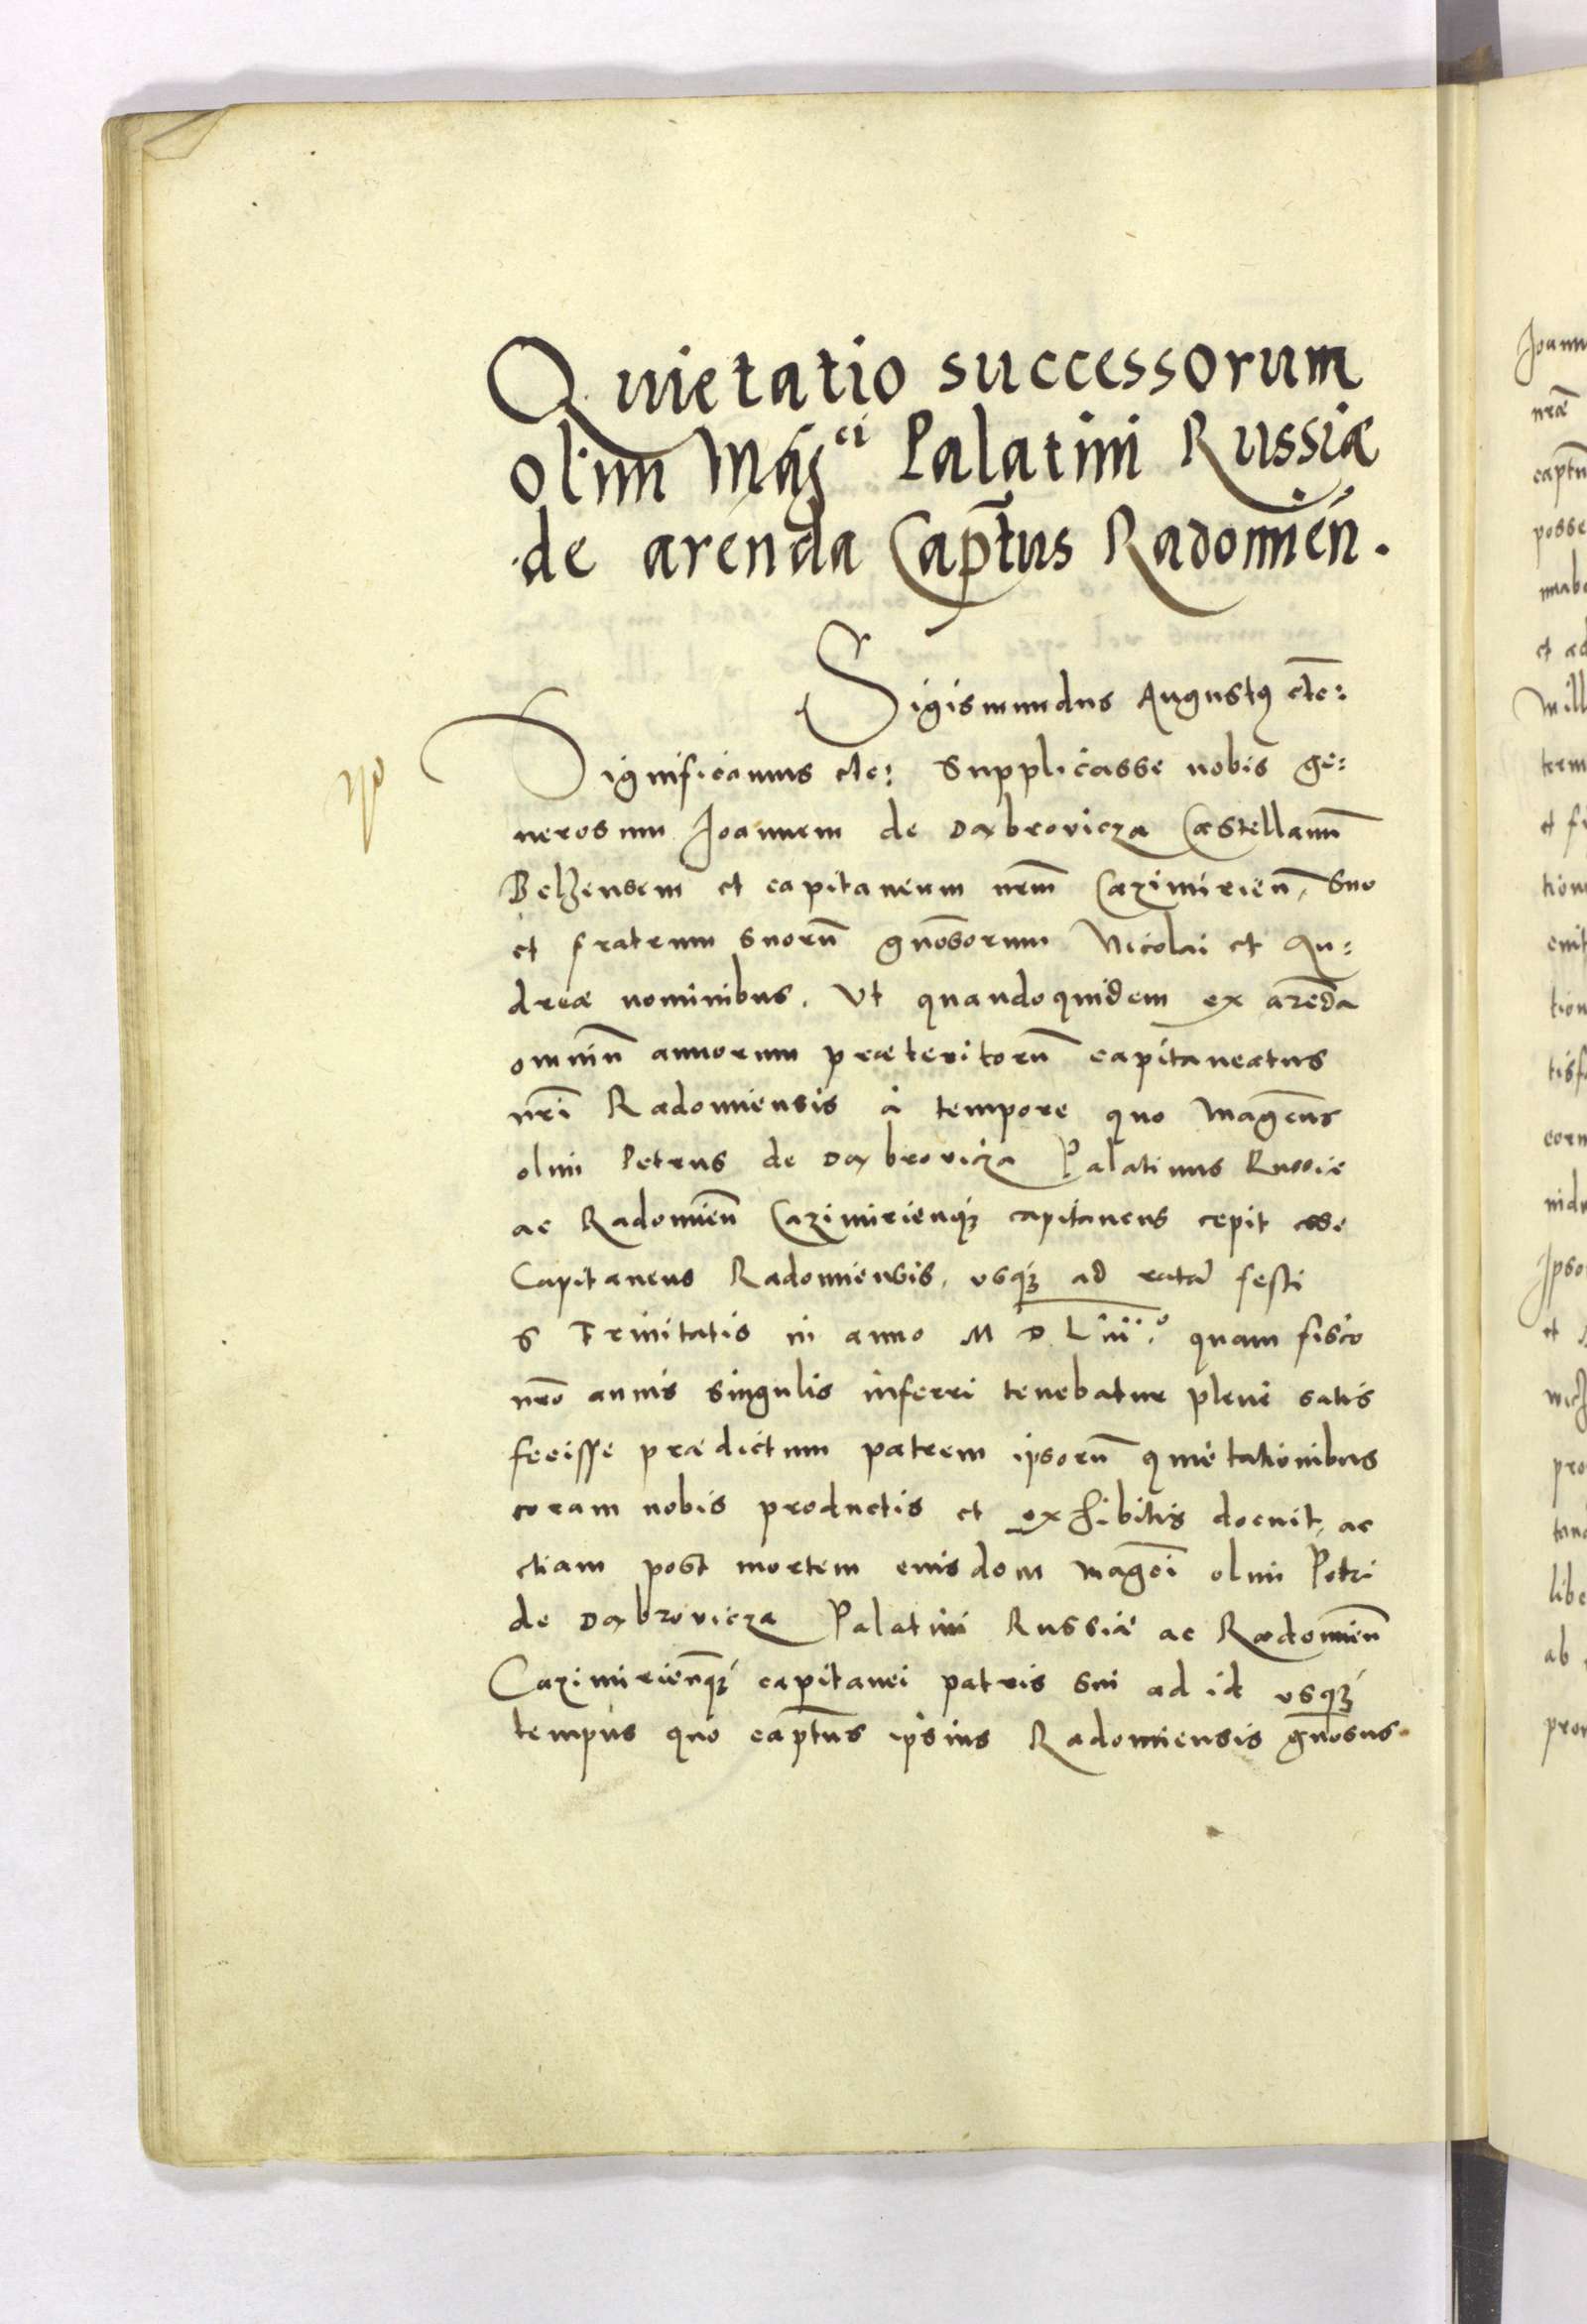 Quietatio successorum
olim Mag̃ci Palatini Russiæ
de arenda Cap̃tus Radomień.
Sigismundus Augustꝰ etc:
Significamus etc: Supplicasse nobis ge:
nerosum Joannem de Dąbrovicza Castellanũ
Belzensem et capitaneum nr̃m Cazimirieñ, Suo
et fratrum suorũ gñosorum Nicolai et An:
dreæ nominibus. Vt quandoquidem ex arẽda
omniũ annorum præteritorũ capitaneatus
nr̃i Radomiensis à tempore quo Magc̃us
olim Petrus de Dąbrovicza Palatinus Russiæ
ac Radomieñ Cazimirienqꝫ capitaneus cepit esse
Capitaneus Radomiensis, vsqꝫ ad ratã festi
S Trinitatis in anno M D L iii.º quam fisco
nr̃o annis singulis inferri tenebatur plene satis
fecisse prædictum patrem ipsorũ quietationibus
coram nobis productis et exhibitis docuit, ac
etiam post mortem eiusdem Magc̃i olim Petri
de Dąbrovicza Palatini Russiæ ac Radomieñ
Cazimirieñqꝫ capitanei patris sui ad id vsqꝫ
tempus quo cap̃tus ipsius Radomiensis gñosus